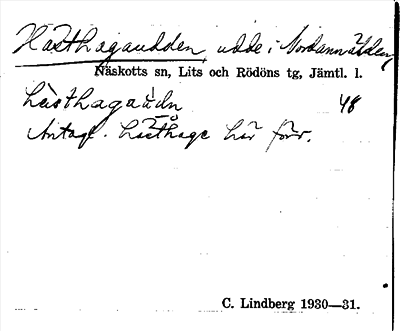 Hästhagaudden, udde i Nordannälden,
Näskotts sn, Lits och Rödöns tg, Jämtl. l.
hàsthagaùdn 48
Antagl. hästhage här förr.
C. Lindberg 1930—31.